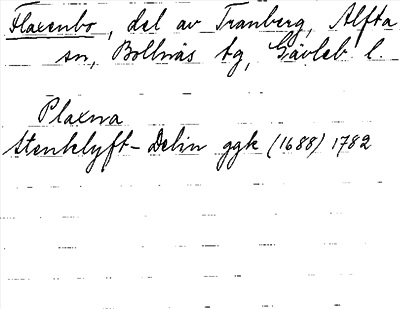 Flaxenbo, del av Tranberg, Alfta
sn, Bollnäs tg, Gävleb l.
Plaxna
Stenklyft-Delin ggk (1688) 1782